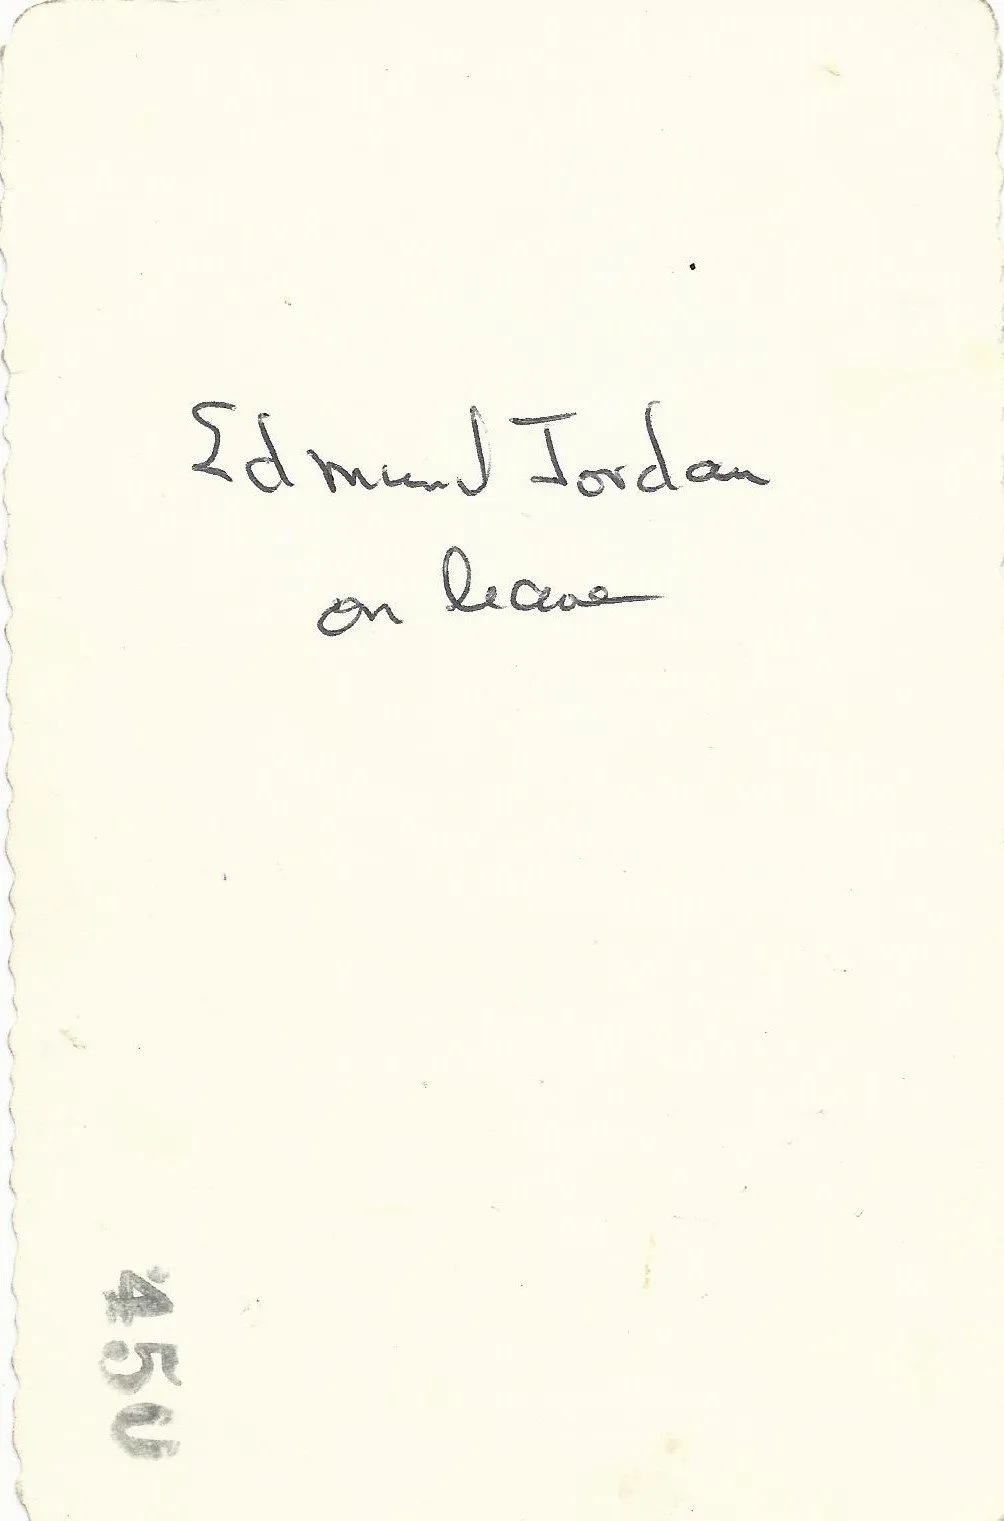 Edmund Jordan
on leave
450